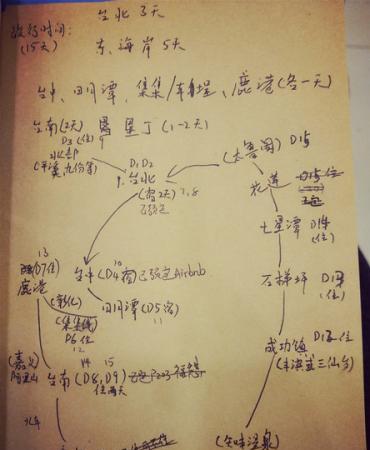 台北 3天
旅行时间:
(15天)
东海岸 5天
台中、日月潭、集集/车埕、鹿港(各一天)
台南(2天) 垦丁(1-2天)
D3(住) 9
(平溪、九份等)
(太鲁阁) D15
D1、D2
台北
(宿2天) 7、8
已预定
花莲
七星潭 D14
(住)
石梯坪 D13
(住)
成功镇 D12住
(丰滨或三仙台)
(知本温泉)
13
(D7住)
鹿港
10
台中(D4宿)已预定Airbnb
(彰化)
日月潭(D5宿)
11
(集集线)
D6住
12
(嘉义)
阿里山
14 15
台南(D8,D9)
住两天